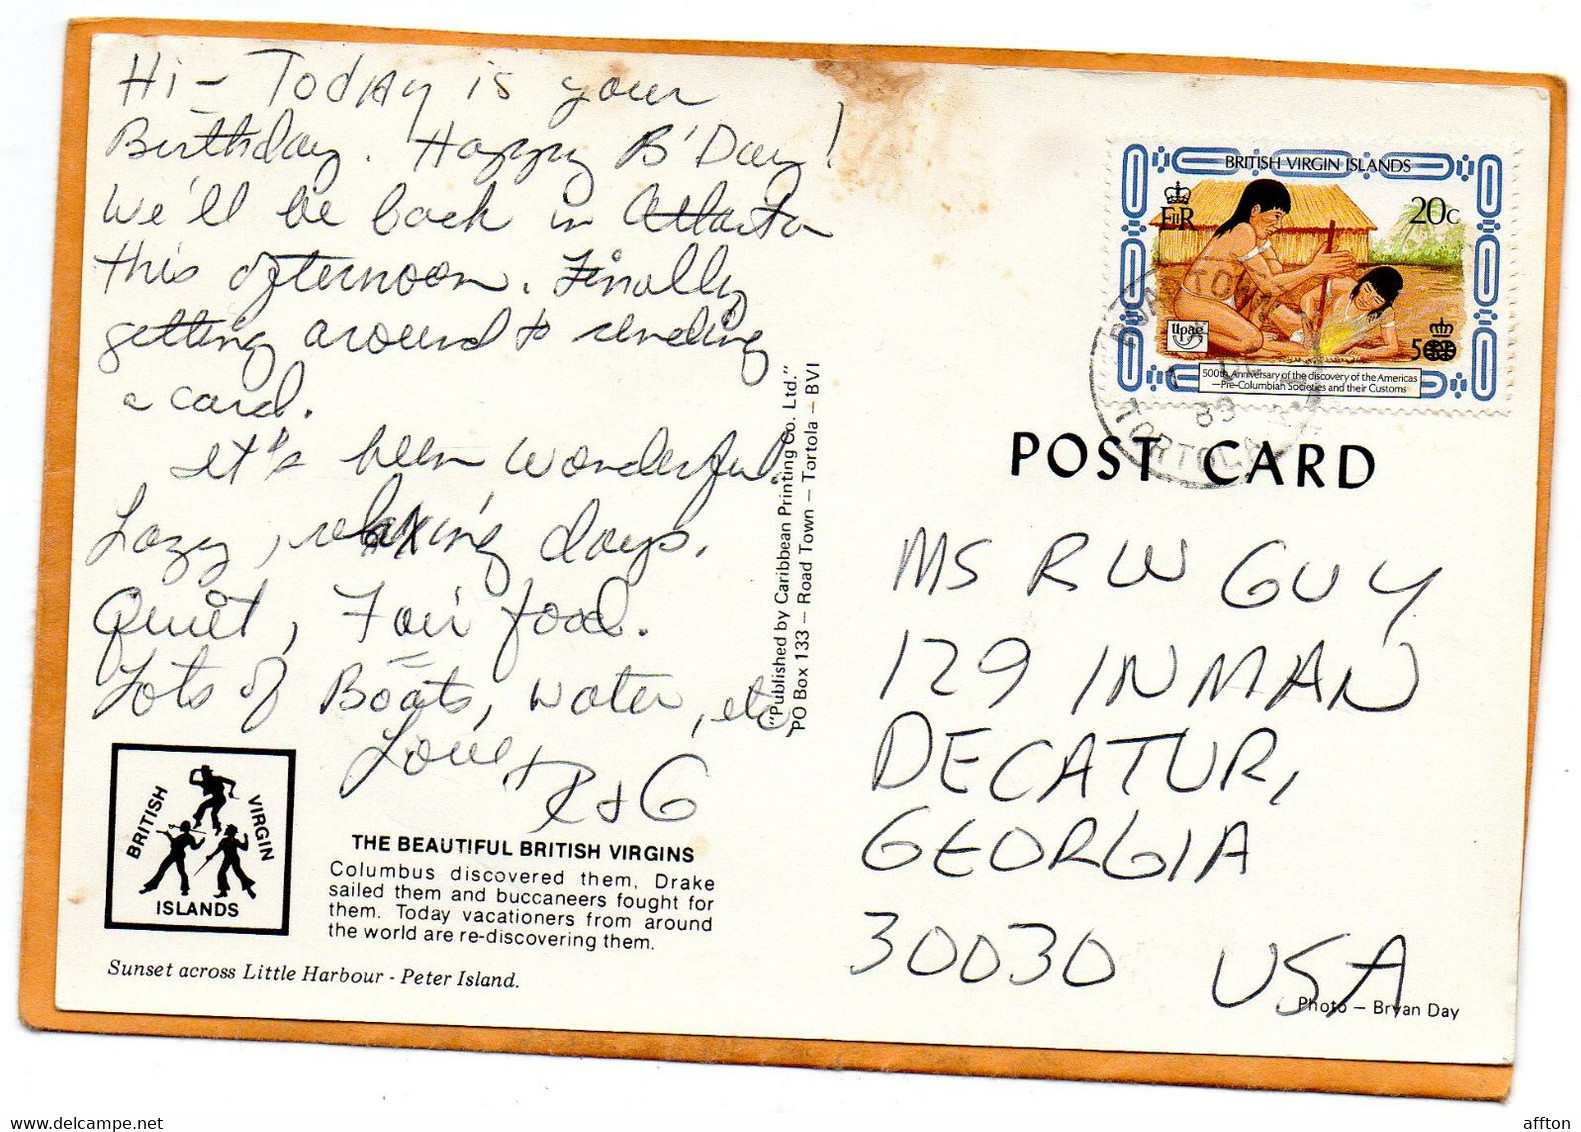 Hi - Today is your
Birthday. Happy B'Day!
We'll be back in Atlanta
this afternoon. Finally
getting around to sending
a card.
It's been wonderful.
Lazy, relaxing days.
Quiet, Fair food.
Lots of Boats, water, etc
Love,
R & G
BRITISH
VIRGIN
ISLANDS
THE BEAUTIFUL BRITISH VIRGINS
Columbus discovered them, Drake
sailed them and buccaneers fought for
them. Today vacationers from around
the world are re-discovering them.
Sunset across Little Harbour - Peter Island.
"Published by Caribbean Printing Co. Ltd."
PO Box 133 – Road Town – Tortola – BVI
BRITISH VIRGIN ISLANDS
EIIR
20c
upae
500
500th Anniversary of the discovery of the Americas
—Pre-Columbian Societies and their Customs
ROAD TOWN
89
TORTOLA
POST CARD
MS R W GUY
129 INMAN
DECATUR,
GEORGIA
30030 USA
Photo – Bryan Day
www.delcampe.net
affton